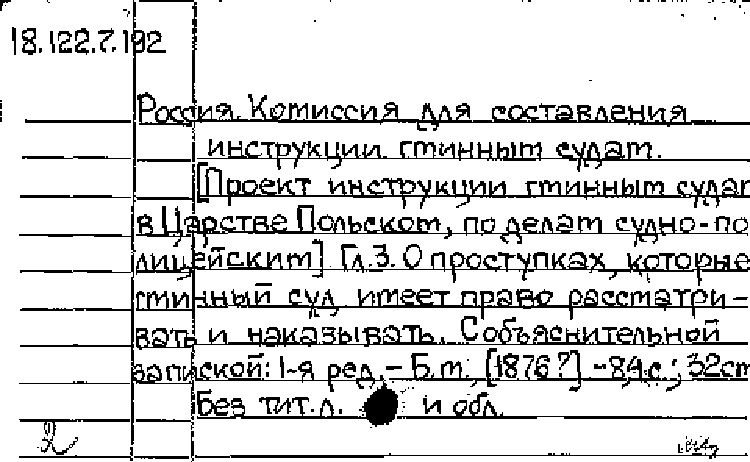 18.122.7.192
Россия. Комиссия для составления
инструкции гминным судам.
[Проект инструкции гминным судам
в Царстве Польском, по делам судно-по
лицейским] Гл.3. О проступках, которые
гминный суд имеет право рассматри-
вать и наказывать. С объяснительной
запиской: 1-я ред.- Б.м., [1876?] -84с.; 32см
Без тит.л. и обл.
2